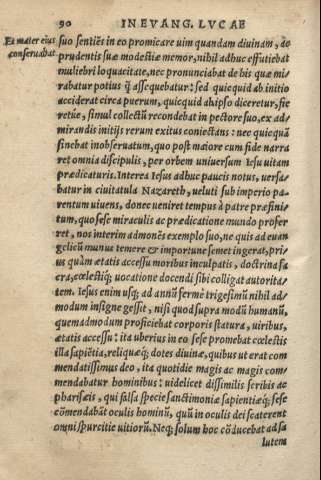 90 IN EVANG. LVCAE
Et mater eius
conservabat
suo sentiẽs in eo promicare uim quandam diuinam, ac
prudentis suæ modestiæ memor, nihil adhuc effutiebat
muliebri loquacitate, nec pronunciabat de his quæ mi-
rabatur potius q̃ assequebatur: sed quicquid ab initio
acciderat circa puerum, quicquid ab ipso diceretur, fie
retúe, simul collectũ recondebat in pectore suo, ex ad-
mirandis initijs rerum exitus coniectans: nec quicquã
sinebat inobseruatum, quo post maiore cum fide narra
ret omnia discipulis, per orbem uniuersum Iesu uitam
prædicaturis. Interea Iesus adhuc paucis notus, uersa-
batur in ciuitatula Nazareth, ueluti sub imperio pa-
rentum uiuens, donec ueniret tempus à patre præfini-
tum, quo sese miraculis ac prædicatione mundo profer
ret, nos interim admonẽs exemplo suo, ne quis ad euan
gelicũ munus temere & importune semet ingerat, pri-
us quàm ætatis accessu moribus inculpatis, doctrina sa
cra, cœlestiq; uocatione docendi sibi colligat autorita-
tem. Iesus enim usq; ad annũ fermè trigesimũ nihil ad-
modum insigne gessit, nisi quod supra modũ humanũ,
quemadmodum proficiebat corporis statura, uiribus,
ætatis accessu: ita uberius in eo sese promebat cœlestis
illa sapiẽtia, reliquæq; dotes diuinæ, quibus ut erat com
mendatissimus deo, ita quotidie magis ac magis com-
mendabatur hominibus: uidelicet dissimilis scribis ac
pharisæis, qui falsa specie sanctimoniæ sapientiæq; sese
cõmendabãt oculis hominũ, quũ in oculis dei scaterent
omni spurcitie uitiorũ. Neq; solum hoc cõducebat ad sa
lutem